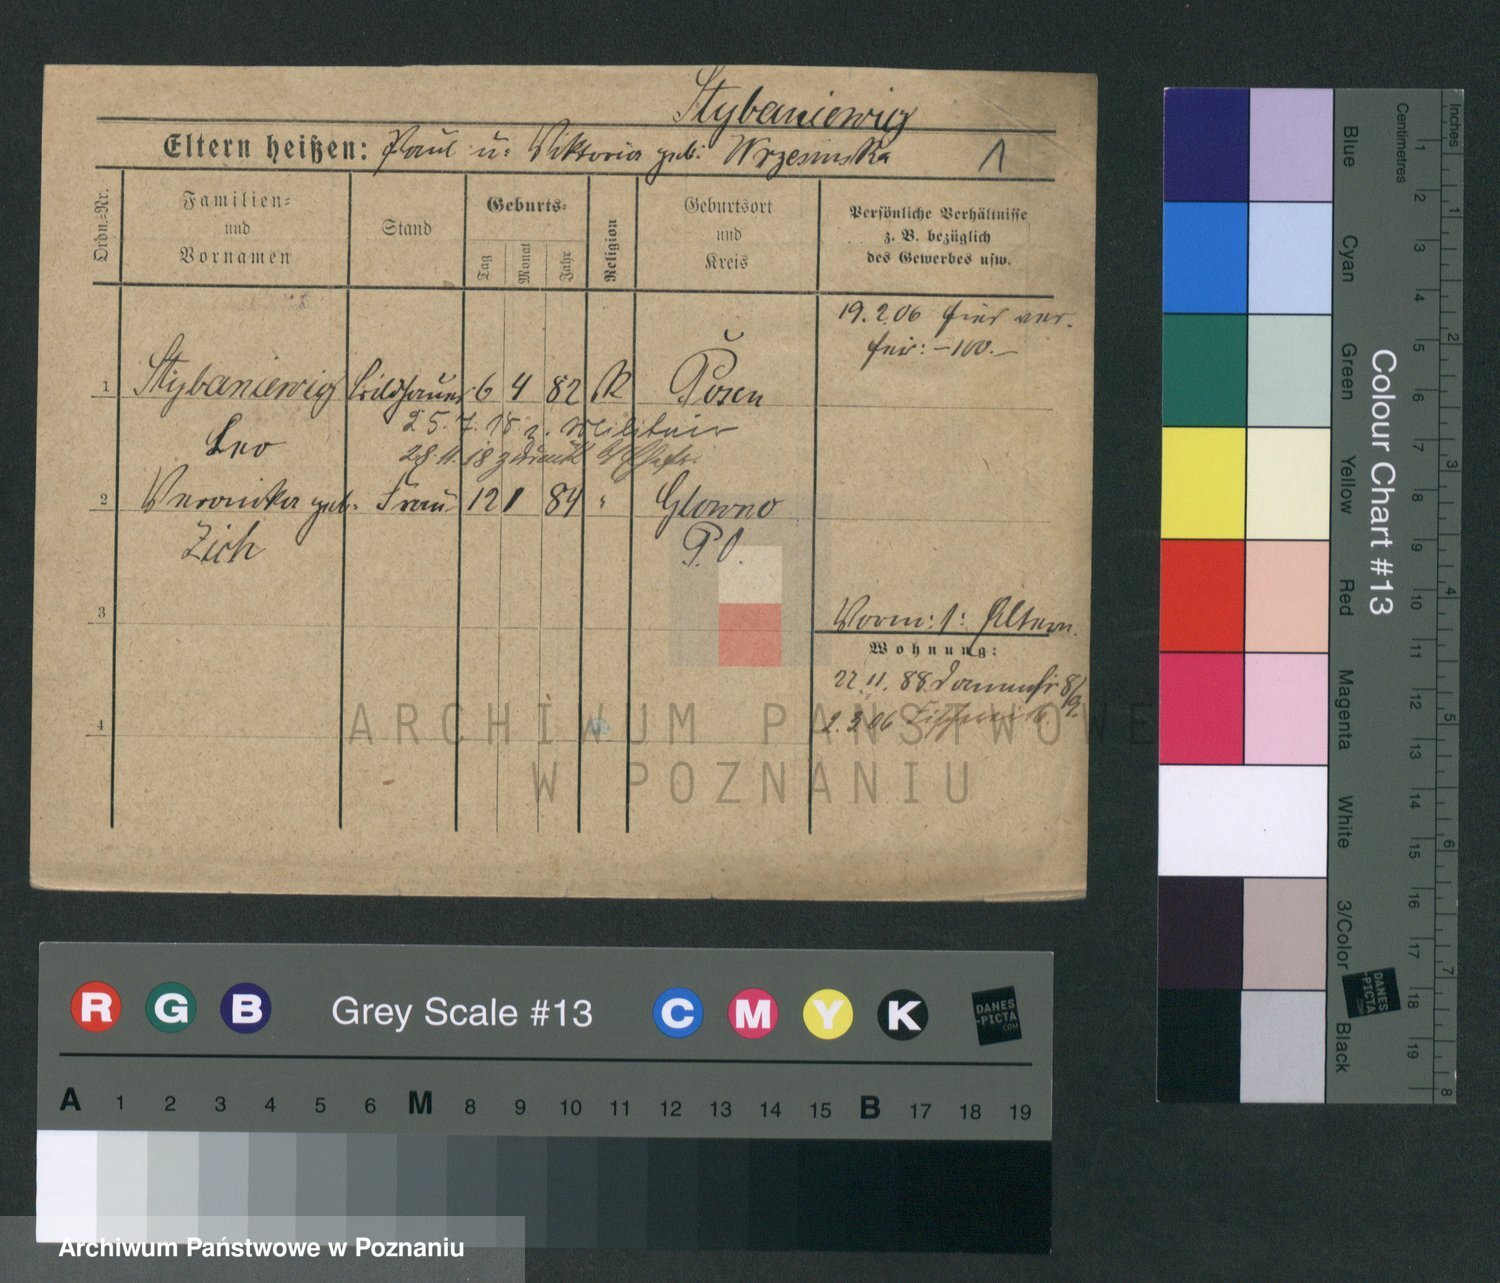 Stybaniewicz
Eltern heißen: Paul u. Viktoria geb. Wrzesinska
1
Ordn.-Nr.
Familien- und Vornamen
Stand
Geburts-
Tag Monat Jahr
Religion
Geburtsort und Kreis
Persönliche Verhältnisse
z. B. bezüglich
des Gewerbes usw.
19.2.06 hier ver-
heir: -100.-
1 Stybaniewicz Bildhauer 6 4 82 K Posen
Leo
25.7.18 z. Militair
28.11.18 zurück
2 Veronika geb. Frau 12 1 84 " Glowno
Zich P.O.
3
Vorm: s: Eltern
Wohnung:
22.11.88
2.3.06
4
ARCHIWUM PAŃSTWOWE
W POZNANIU
Inches
Centimetres
1 2 3 4 5 6 7 8 9 10 11 12 13 14 15 16 17 18 19
1 2 3 4 5 6 7 8
Colour Chart #13
Blue
Cyan
Green
Yellow
Red
Magenta
White
3/Color
Black
DANES
-PICTA
.COM
R G B Grey Scale #13 C M Y K
DANES
-PICTA
.COM
A 1 2 3 4 5 6 M 8 9 10 11 12 13 14 15 B 17 18 19
Archiwum Państwowe w Poznaniu